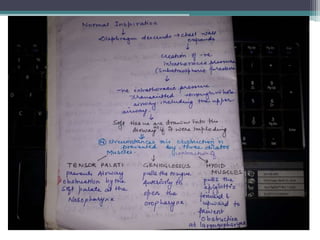 Normal Inspiration
Diaphragm descends → chest wall
expands
creation of -ve
intrathoracic pressure
(Subatmospheric pressure)
-ve intrathoracic pressure
transmitted
airway including the upper
airway.
Soft tissue are drawn into the
airway if it were impeding
circumstances air obstruction is
prevented by three dilator
Muscles
TENSOR PALATI
prevents airway
obstruction by the
soft palate at the
Nasopharynx
GENIOGLOSSUS
pulls the tongue
anteriorly to
open the
oropharynx.
HYOID
MUSCLES
pulls the
epiglottis
forward &
upward to
prevent
obstruction
at laryngopharynx